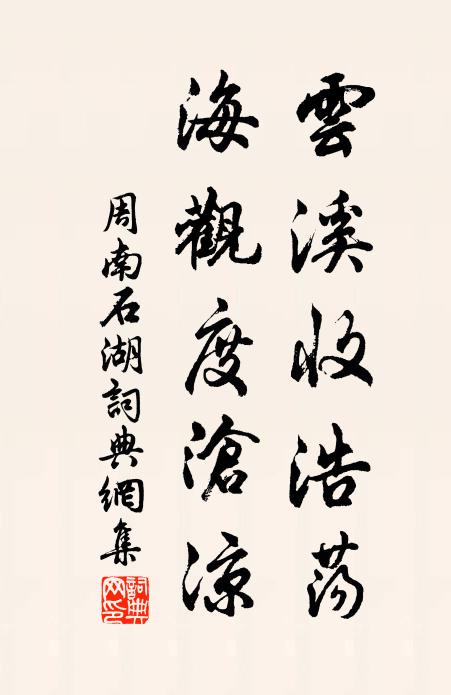 雲溪收浩蕩
海觀度滄涼
周南石湖詞典網集
詞典網印